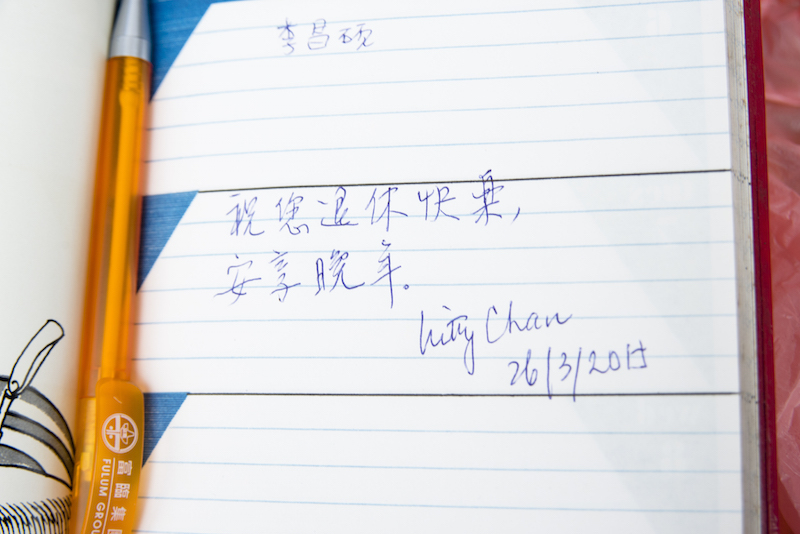 李昌碩
祝您退休快乘,
安享晚年。
Kitty Chan
26/3/2015
富臨集團
FULUM GROU